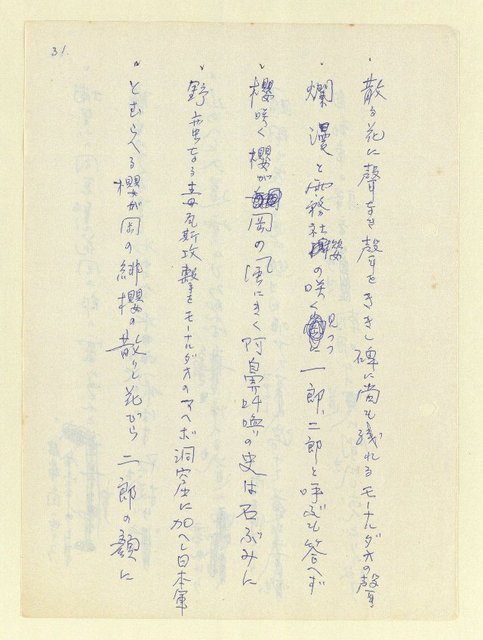 31.
散る花に聲なき聲をききし碑に尚も残れるモーナルダオの聲
爛漫と霧社櫻の咲く見つつ一郎、二郎と呼べども答へず
櫻咲く櫻が岡の風にきく阿鼻叫喚の史は石ぶみに
野蛮なる毒瓦斯攻撃をモーナルダオのマヘボ洞窟に加へし日本軍
とむらへる櫻が岡の緋櫻の散りし花から二郎の顔に